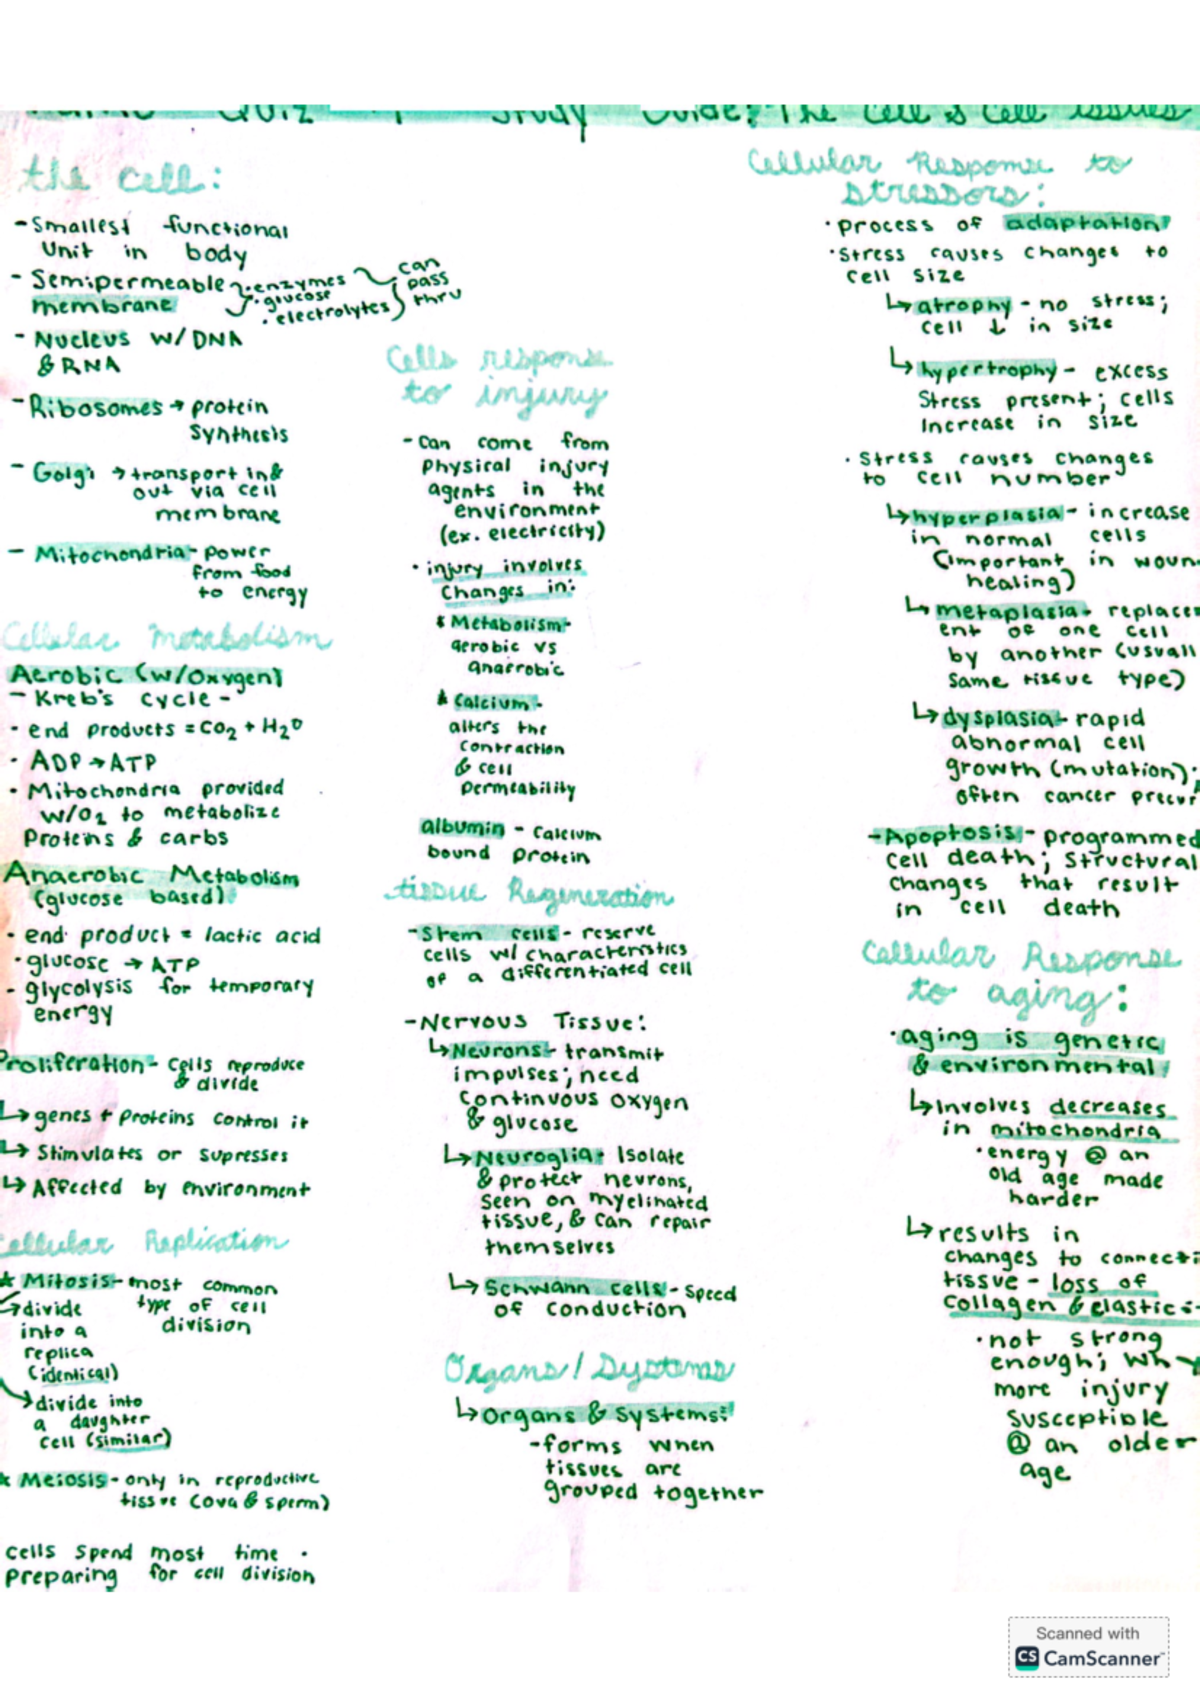 Quiz Study Guide: The Cell & Cell issues
the cell:
- Smallest functional
Unit in body
- Semipermeable
membrane
· enzymes
· glucose
· electrolytes
can
pass
thru
- Nucleus w/ DNA
& RNA
- Ribosomes → protein
Synthesis
- Golgi → transport in &
out via cell
membrane
- Mitochondria - power
from food
to energy
Cellular Metabolism
Aerobic (w/Oxygen)
- Kreb's cycle -
· end products = CO2 + H2O
· ADP → ATP
· Mitochondria provided
w/O2 to metabolize
Proteins & carbs
Anaerobic Metabolism
(glucose based)
· end product = lactic acid
· glucose → ATP
- glycolysis for temporary
energy
Proliferation - Cells reproduce
& divide
↳ genes + Proteins control it
↳ Stimulates or supresses
↳ Affected by environment
Cellular Replication
★ Mitosis - most common
type of cell
division
→ divide
into a
replica
(identical)
→ divide into
a daughter
cell (similar)
★ Meiosis - only in reproductive
tissue (ova & sperm)
cells spend most time ·
preparing for cell division
Cells response
to injury
- Can come from
physical injury
agents in the
environment
(ex. electricity)
· injury involves
Changes in:
★ Metabolism -
aerobic vs
anaerobic
★ Calcium -
alters the
contraction
& cell
permeability
albumin - calcium
bound protein
tissue Regeneration
- Stem cells - reserve
cells w/ characteristics
of a differentiated cell
- Nervous Tissue:
↳ Neurons - transmit
impulses; need
continuous oxygen
& glucose
↳ Neuroglia - Isolate
& protect neurons,
seen on myelinated
tissue, & can repair
themselves
↳ Schwann cells - speed
of conduction
Organs / Systems
↳ Organs & Systems:
- forms when
tissues are
grouped together
Cellular Response to
stressors:
· process of adaptation
· Stress causes changes to
cell size
↳ atrophy - no stress;
cell ↓ in size
↳ hypertrophy - excess
Stress present; cells
Increase in size
· Stress causes changes
to cell number
↳ hyperplasia - increase
in normal cells
(important in woun
healing)
↳ metaplasia - replacem
ent of one cell
by another (usuall
Same tissue type)
↳ dysplasia - rapid
abnormal cell
growth (mutation);
often cancer precur
- Apoptosis - programmed
cell death; Structural
changes that result
in cell death
Cellular Response
to aging:
· aging is genetic
& environmental
↳ Involves decreases
in mitochondria
· energy @ an
old age made
harder
↳ results in
changes to connecti
tissue - loss of
collagen & elastic
· not strong
enough; why
more injury
susceptible
@ an older
age
Scanned with
CS CamScanner